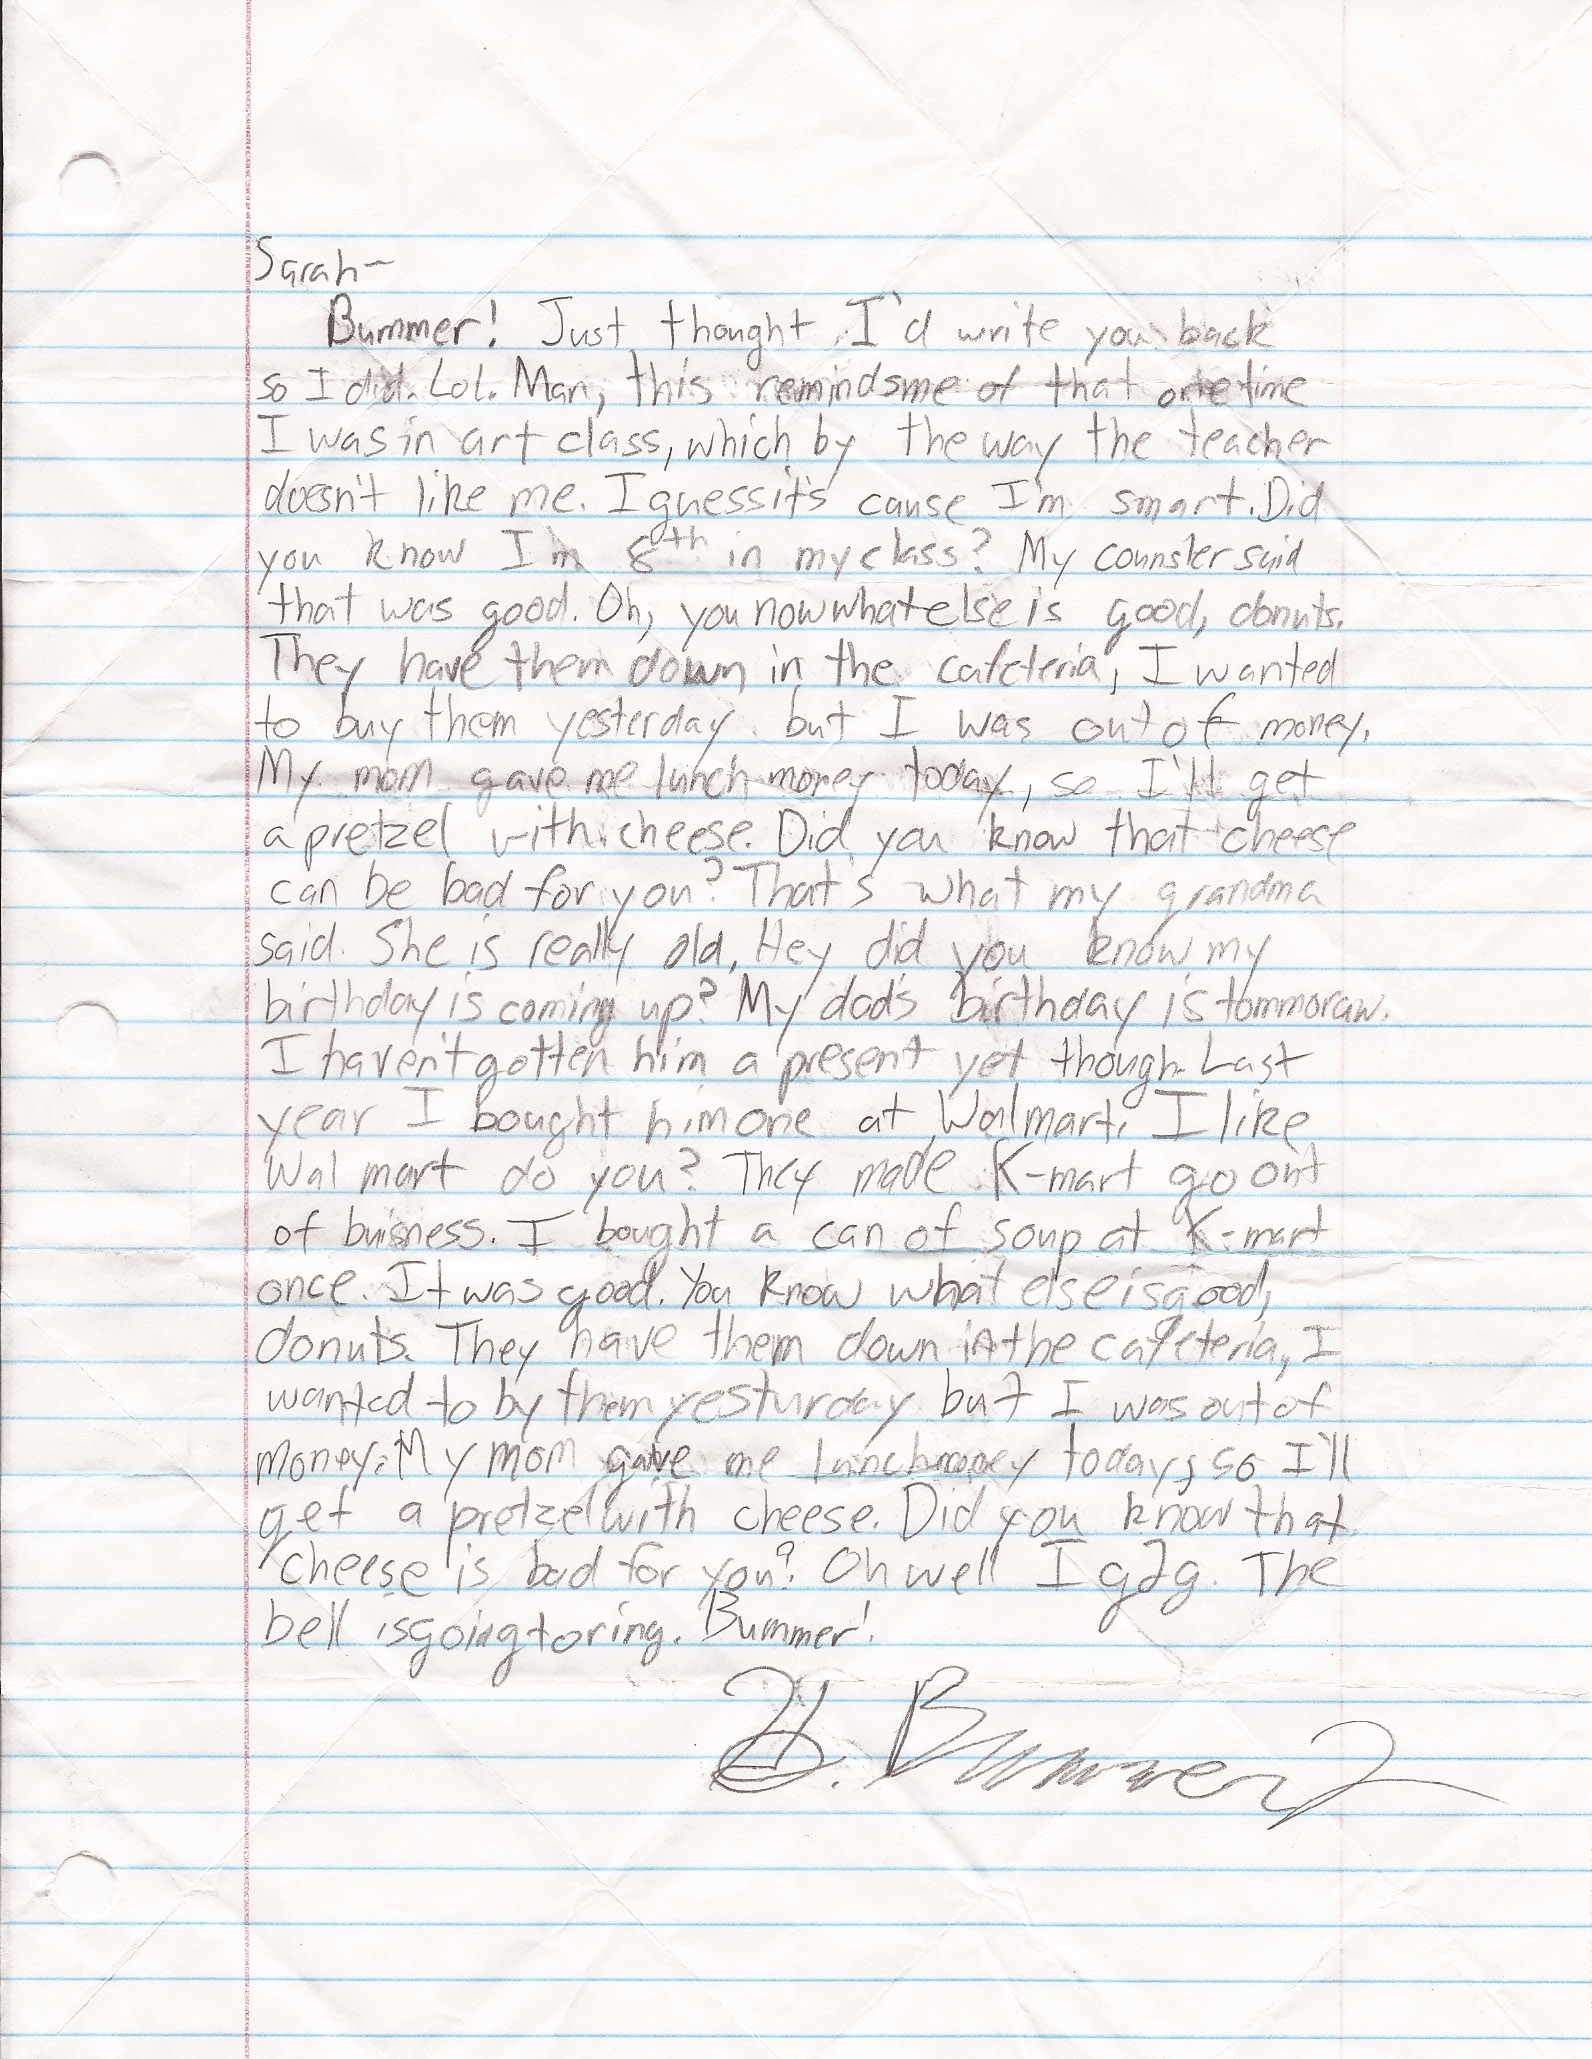 Sarah-
Bummer! Just thought I'd write you back
so I did. Lol. Man, this reminds me of that one time
I was in art class, which by the way the teacher
doesn't like me. I guess it's cause I'm smart. Did
you know I'm 8th in my class? My counsler said
that was good. Oh, you now what else is good, donuts.
They have them down in the cafeteria, I wanted
to buy them yesterday but I was out of money.
My mom gave me lunch money today, so I'll get
a pretzel with cheese. Did you know that cheese
can be bad for you? That's what my grandma
said. She is really old. Hey did you know my
birthday is coming up? My dad's birthday is tommoraw.
I haven't gotten him a present yet though. Last
year I bought him one at Walmart. I like
Wal mart do you? They made K-mart go out
of buisness. I bought a can of soup at K-mart
once. It was good. You know what else is good,
donuts. They have them down in the cafeteria, I
wanted to by them yesturday but I was out of
money. My mom gave me lunch money today, so I'll
get a pretzel with cheese. Did you know that
cheese is bad for you? Oh well I g2g. The
bell is going to ring. Bummer!
Bummer